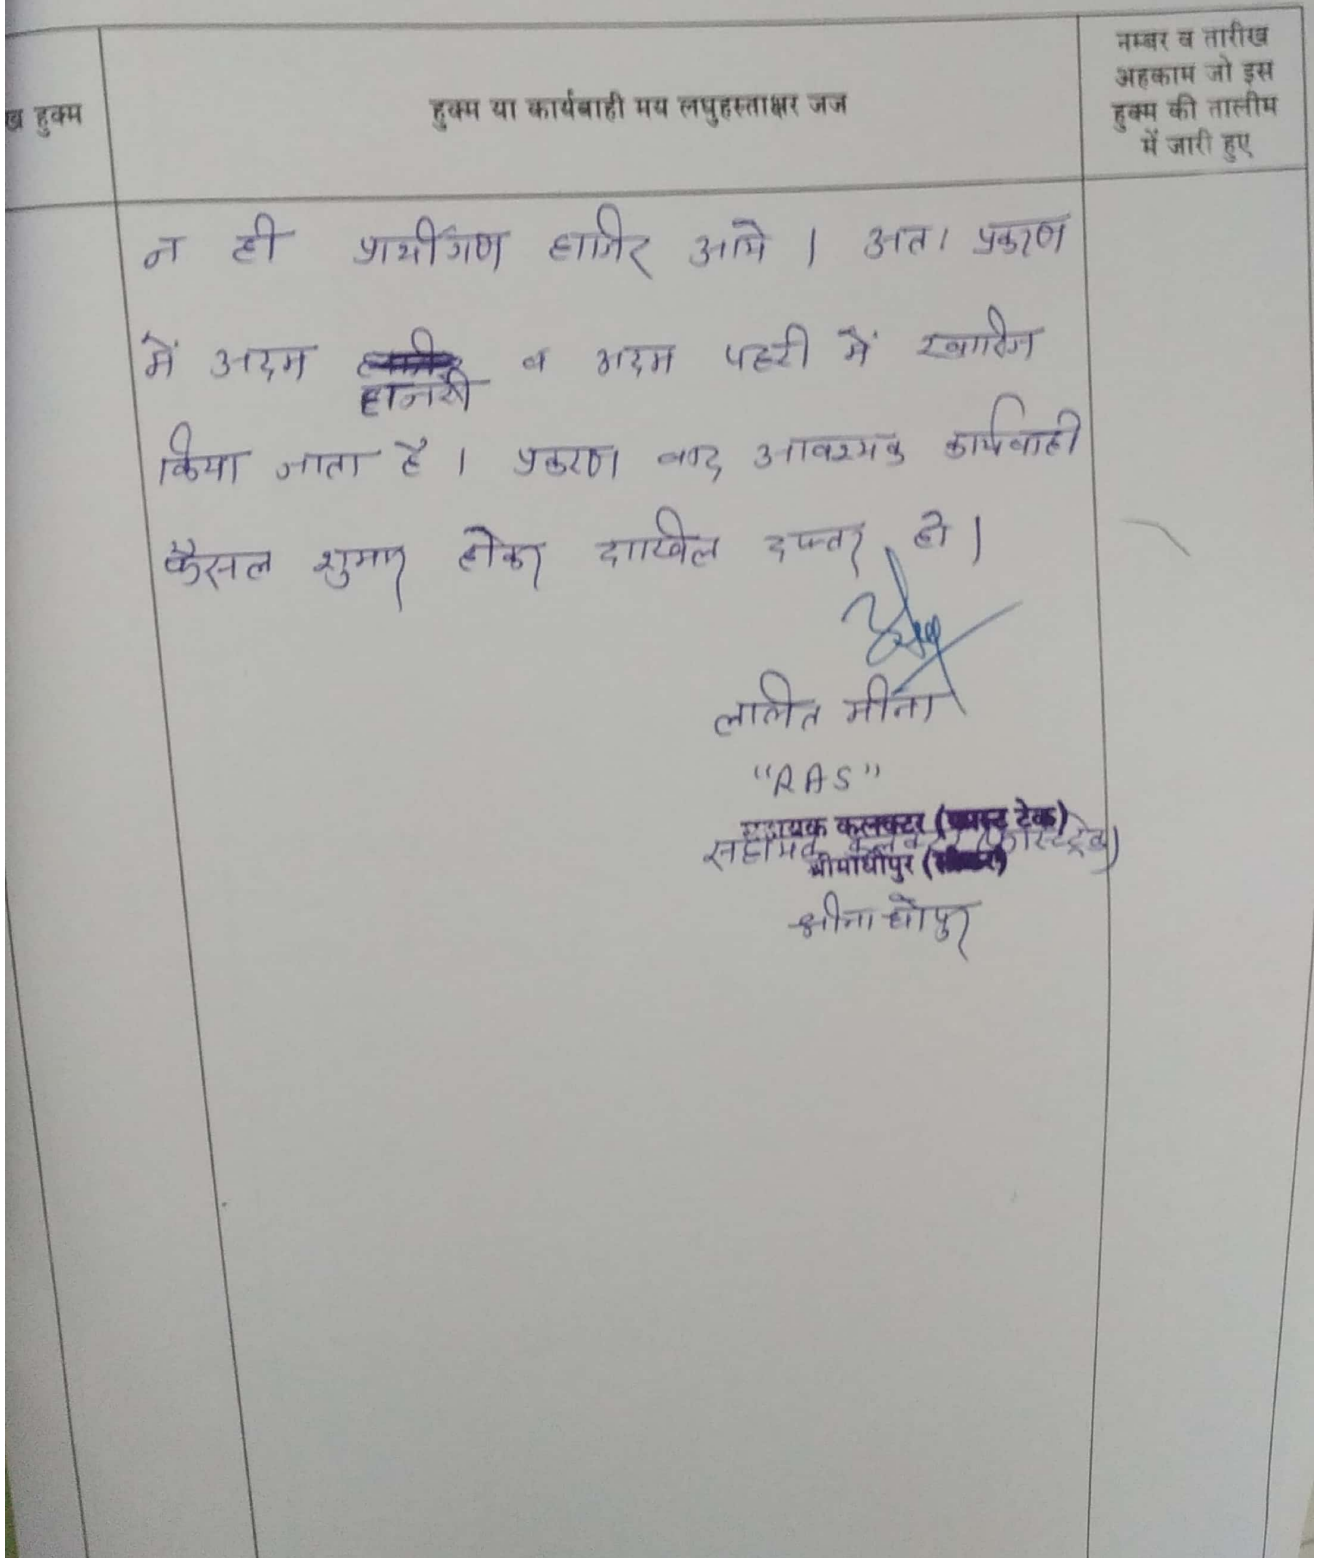 ख हुक्म
हुक्म या कार्यवाही मय लघुहस्ताक्षर जज
नम्बर व तारीख
अहकाम जो इस
हुक्म की तालीम
में जारी हुए
न ही प्रार्थीगण हाजिर आये । अतः प्रकरण
में अदम व अदम पहरी में खारिज
हाजरी
किया जाता है । प्रकरण बाद आवश्यक कार्यवाही
फैसल शुमार होकर दाखिल दफ्तर हो ।
ललित मीना
"RAS"
सहायक कलक्टर (फास्ट ट्रेक)
सहायक कलक्टर (फास्ट ट्रेक)
श्रीमाधोपुर
श्रीमाधोपुर